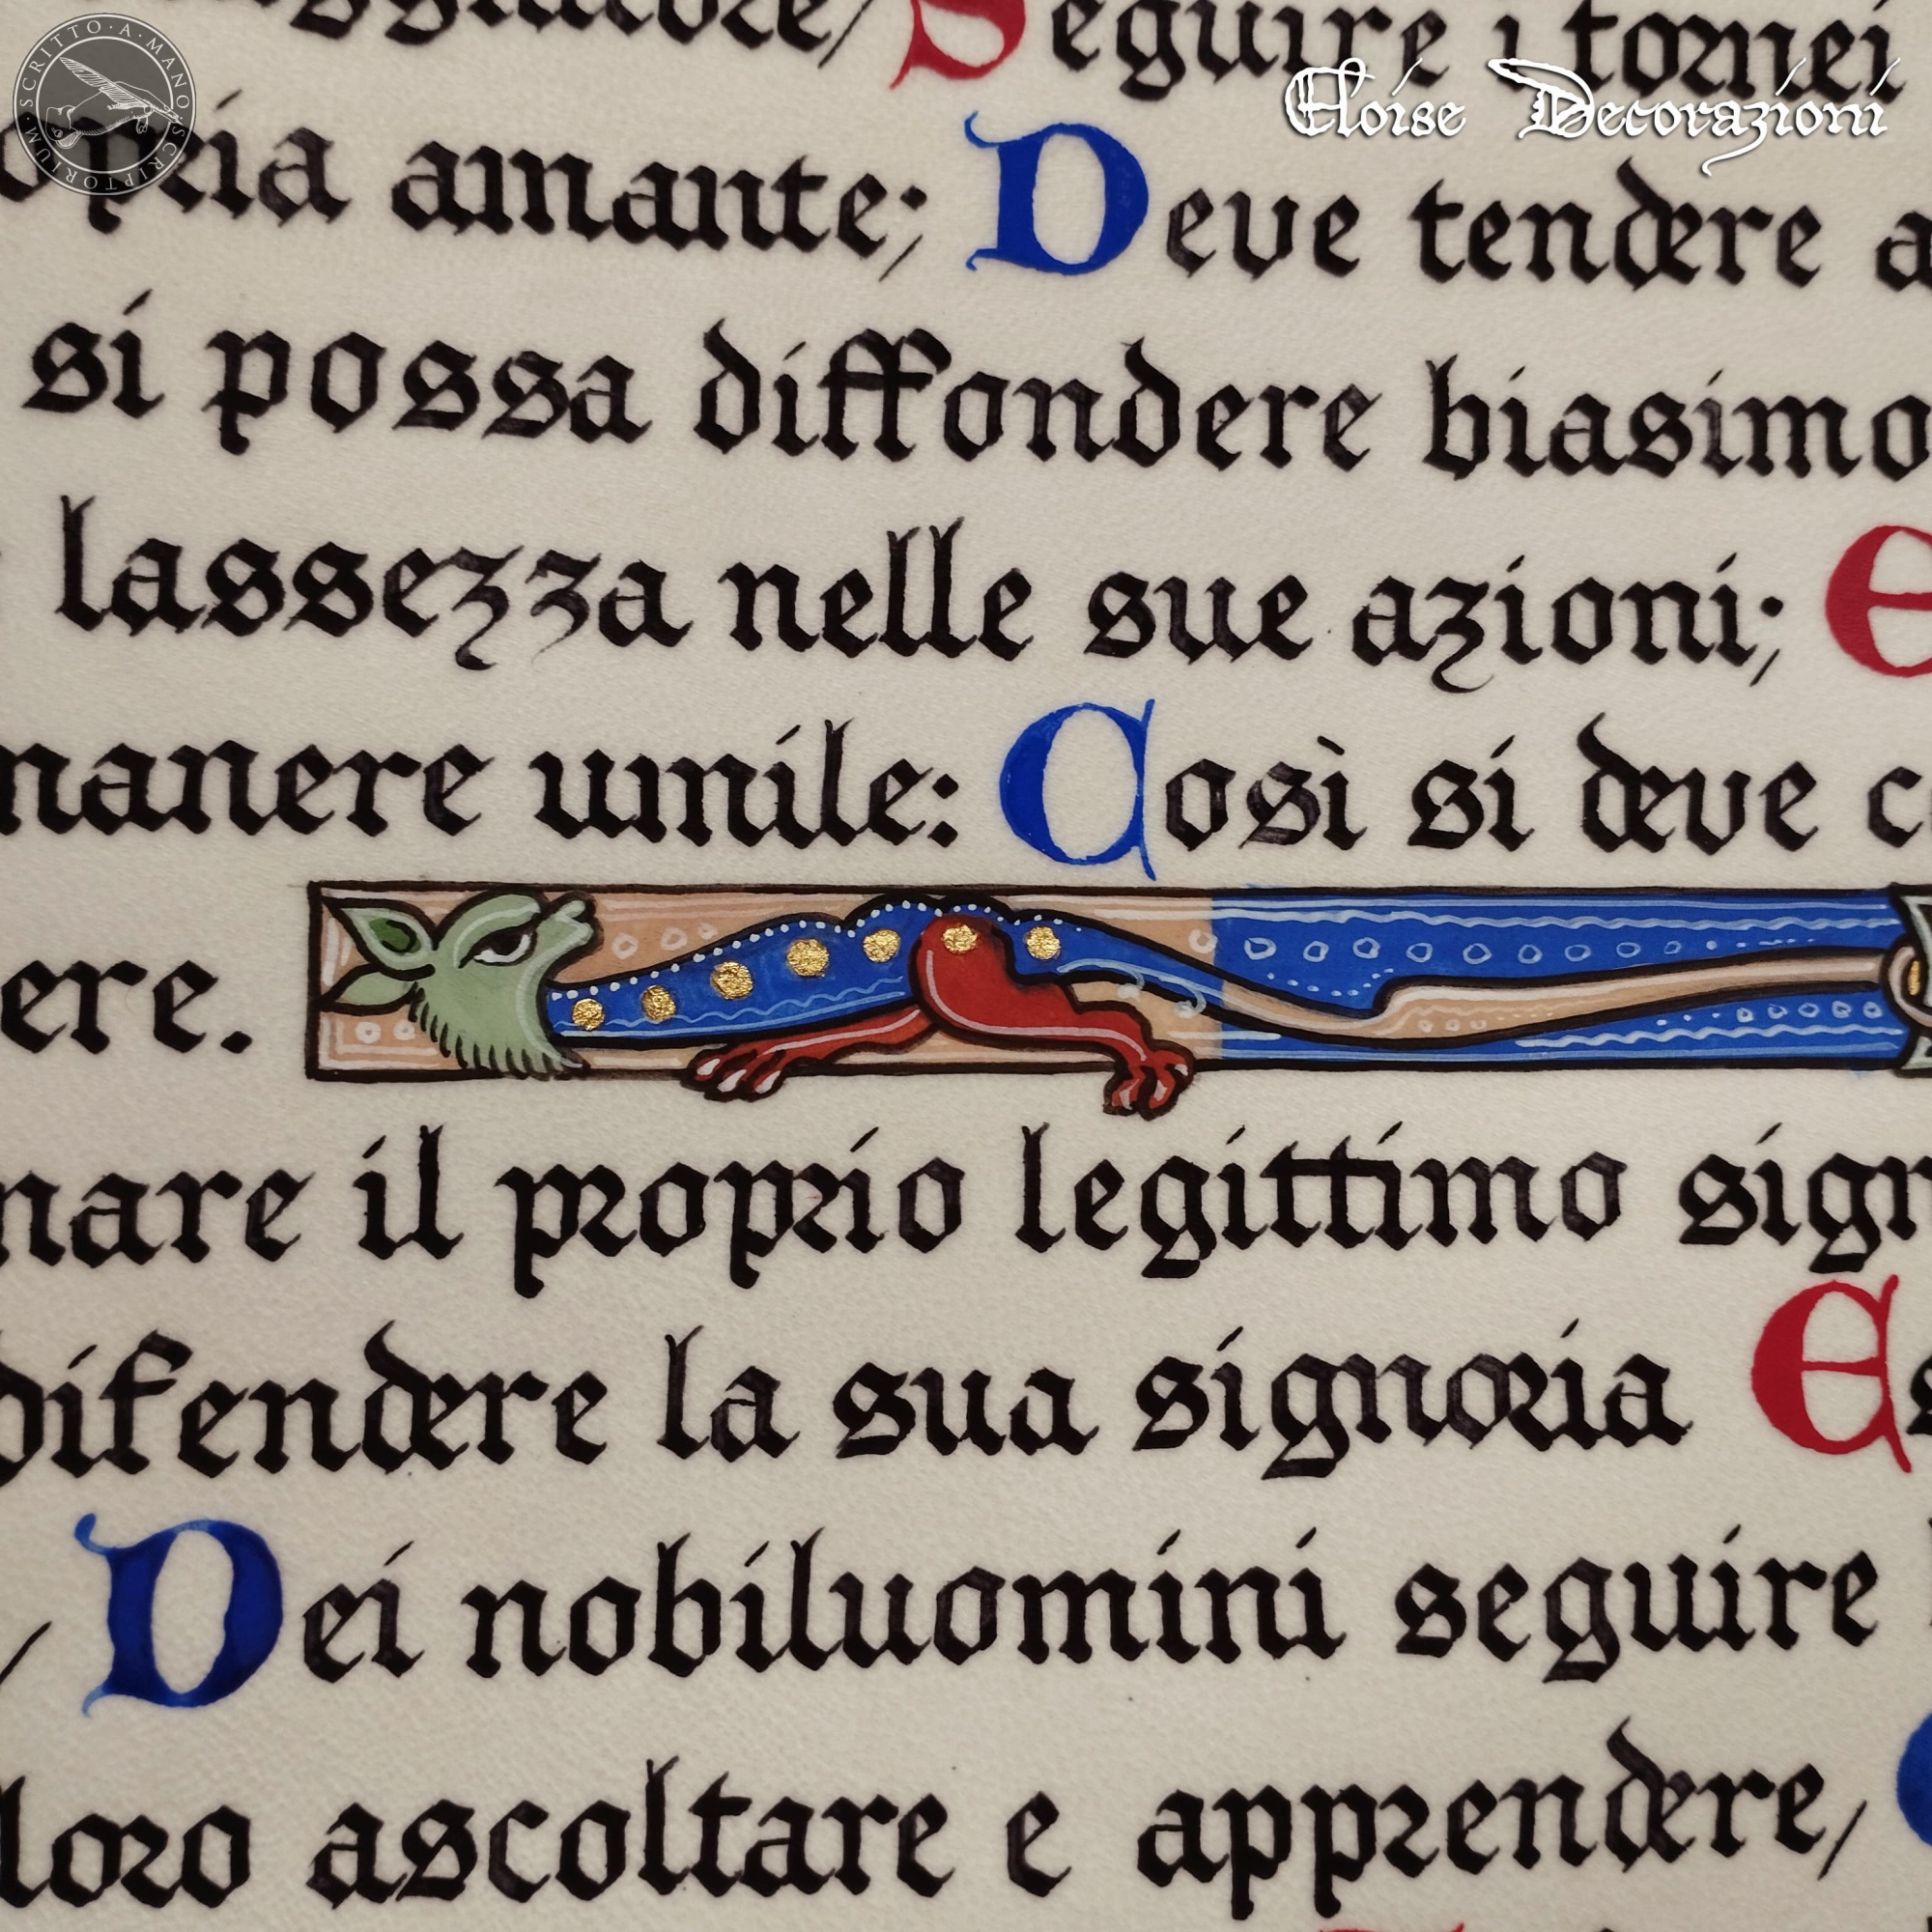 SCRITTO·A·MANO·SCRIPTORIUM·
Eloise Decorazioni
Seguire i tornei
amante; Deve tendere a
si possa diffondere biasimo
lassezza nelle sue azioni; E
manere umile: Così si deve
ere.
nare il proprio legittimo sign
difendere la sua signoria Es
, Dei nobiluomini seguire
loro ascoltare e apprendere,